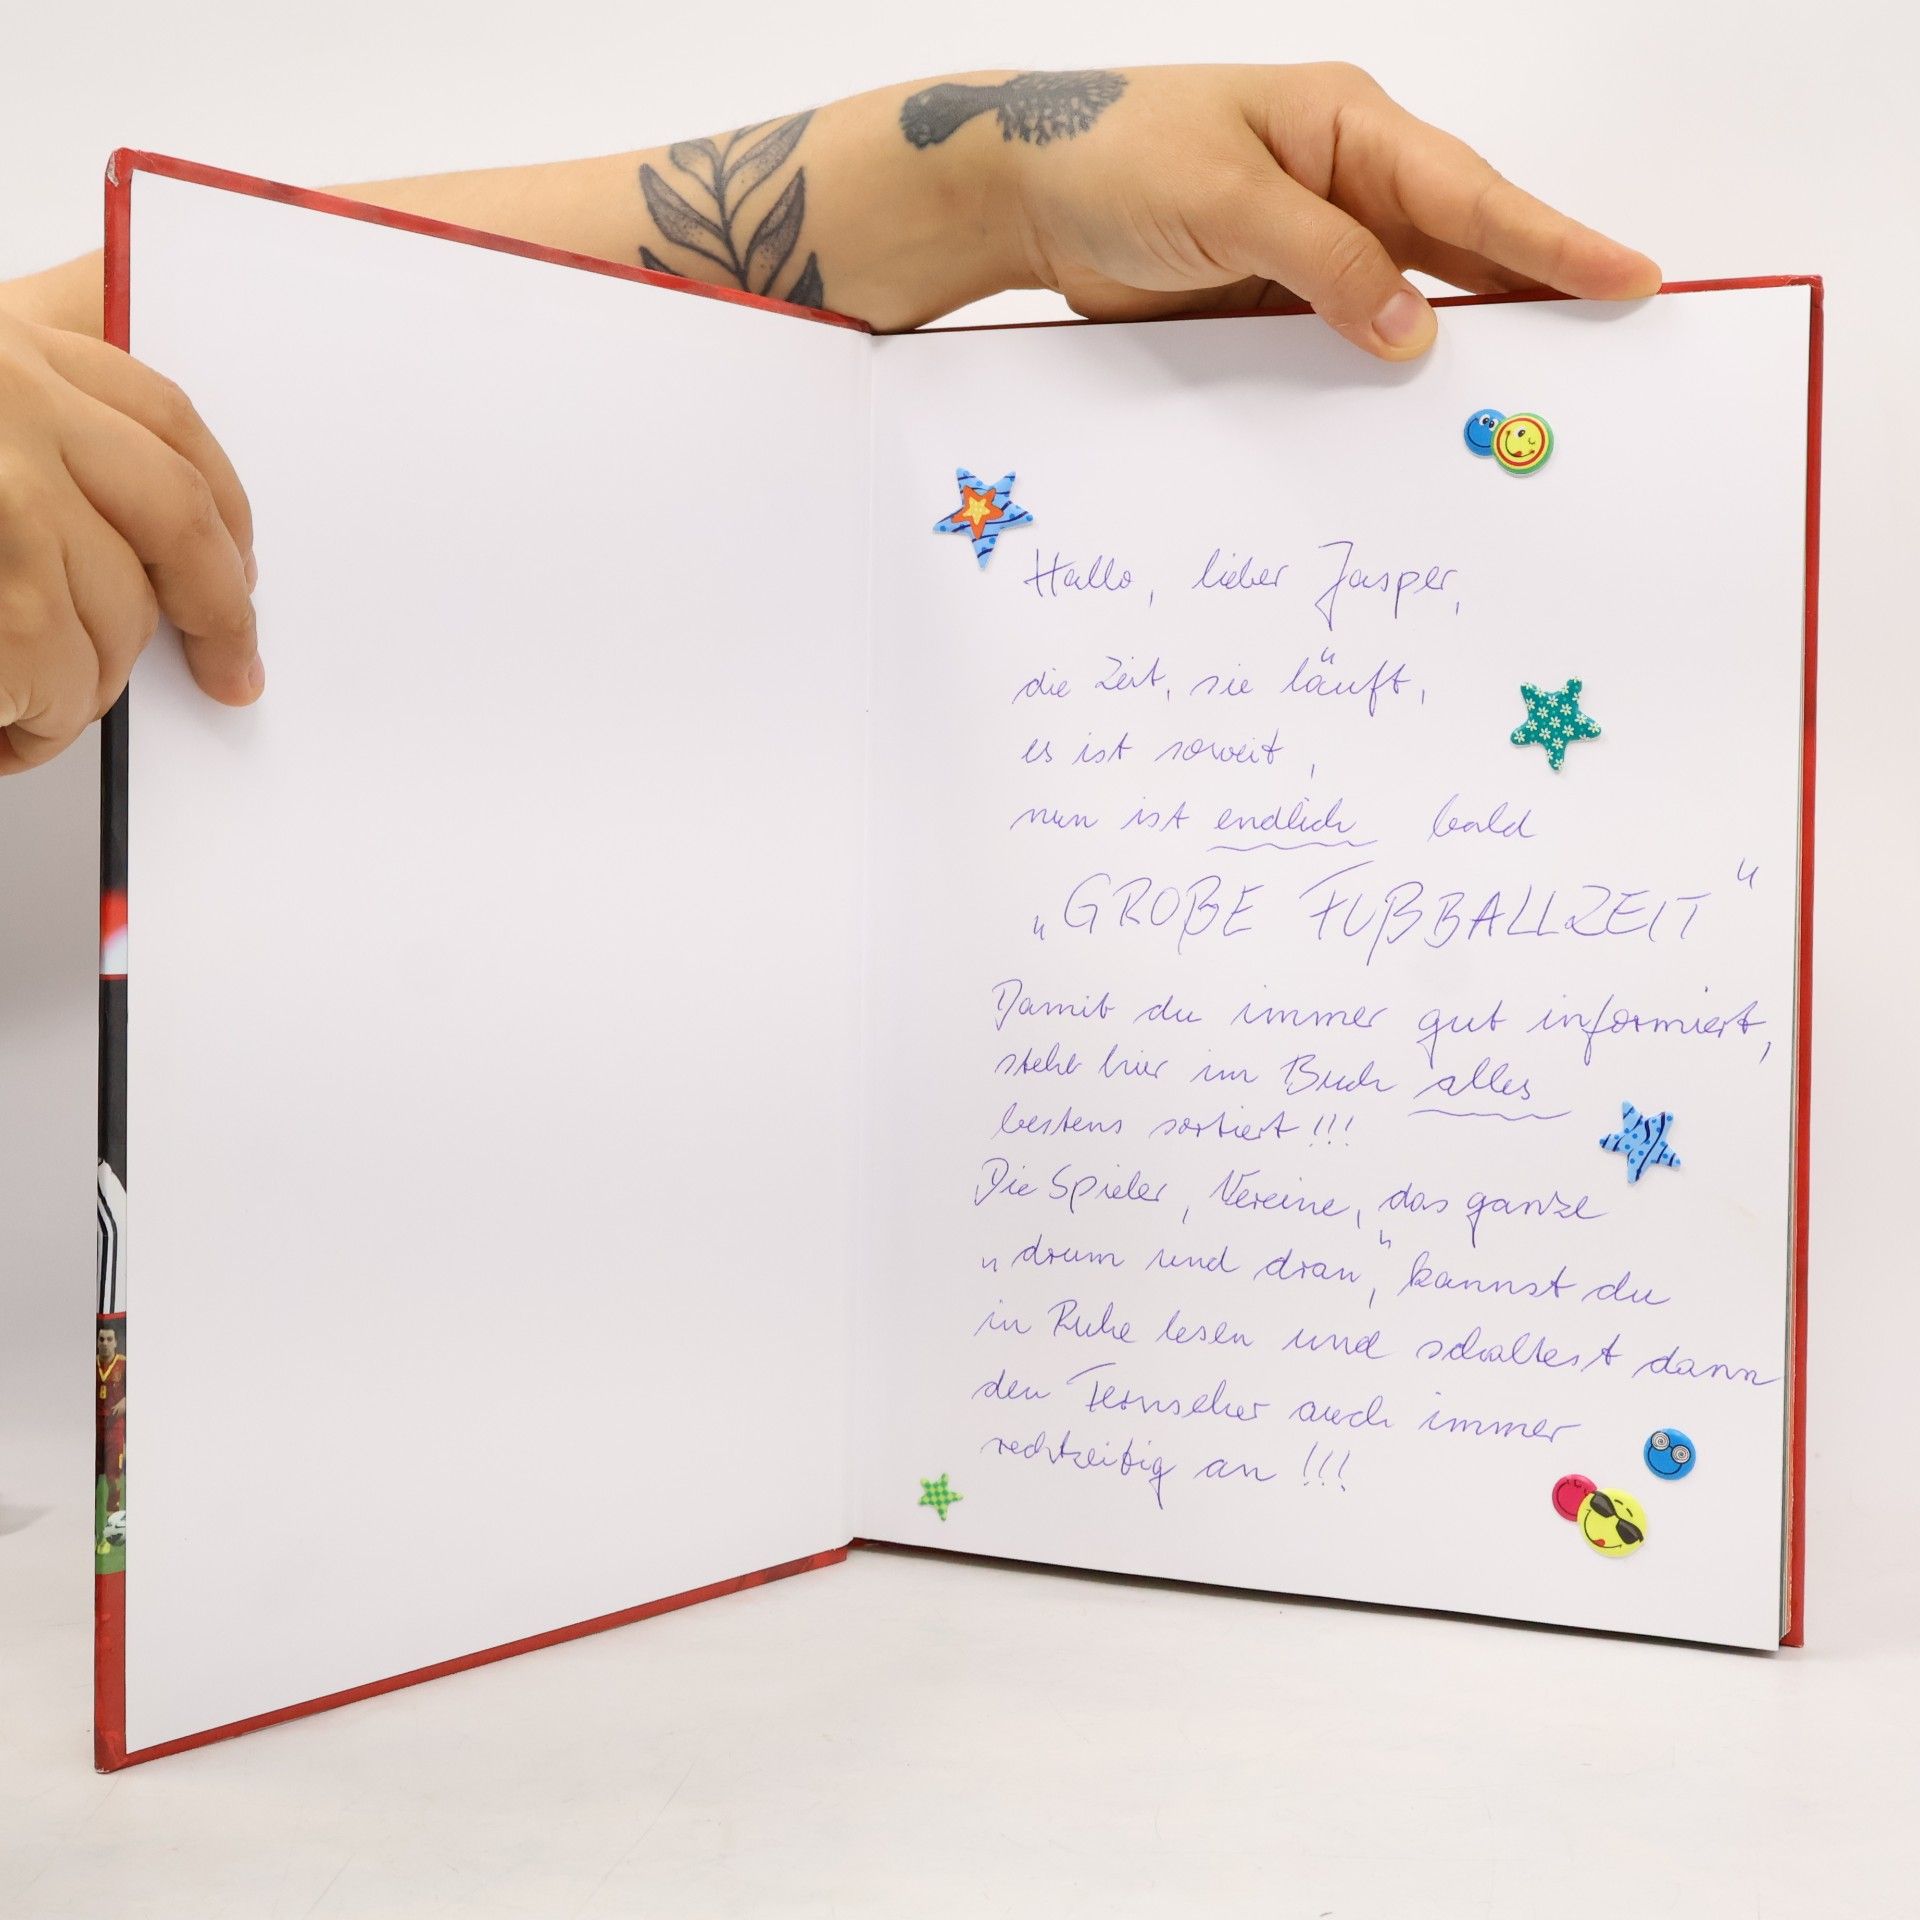 Hallo, lieber Jasper,
die Zeit, sie läuft,
es ist soweit,
nun ist endlich bald
„GROßE FUßBALLZEIT“
Damit du immer gut informiert,
steht hier im Buch alles
bestens sortiert!!!
Die Spieler, Vereine, das ganze
„drum und dran“, kannst du
in Ruhe lesen und schaltest dann
den Fernseher auch immer
rechtzeitig an!!!